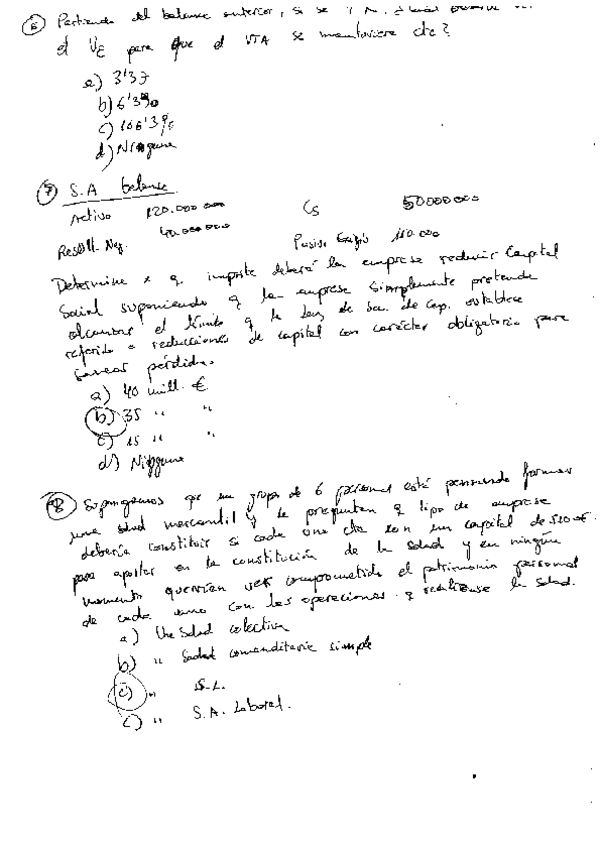 6 Partiendo del balance anterior, si se
el VE para que el VTA se mantuviera cte?
a) 3'37
b) 6'3%
c) 106'3%
d) Ninguna
7 S.A balance
Activo 120.000.000 Cs 50000000
Result. Neg. 40.000.000 Pasivo Exigible 110.000
Determine x q importe deberá la empresa reducir Capital
Social suponiendo q la empresa simplemente pretende
alcanzar el límite q la Ley de Soc. de Cap. establece
referido a reducciones de capital con carácter obligatorio para
sanear pérdidas.
a) 40 mill. €
b) 35 " "
c) 15 " "
d) Ninguna
8 Supongamos que un grupo de 6 personas está pensando formar
una sdad mercantil y le preguntan q tipo de empresa
debería constituir si cada uno cta con un capital de 520€
para aportar en la constitución de la sdad y en ningún
momento querrían ver comprometido el patrimonio personal
de cada uno con las operaciones q realizase la sdad.
a) Una Sdad colectiva
b) " Sadad comanditaria simple
c) " S.L.
c) " S.A. Laboral.